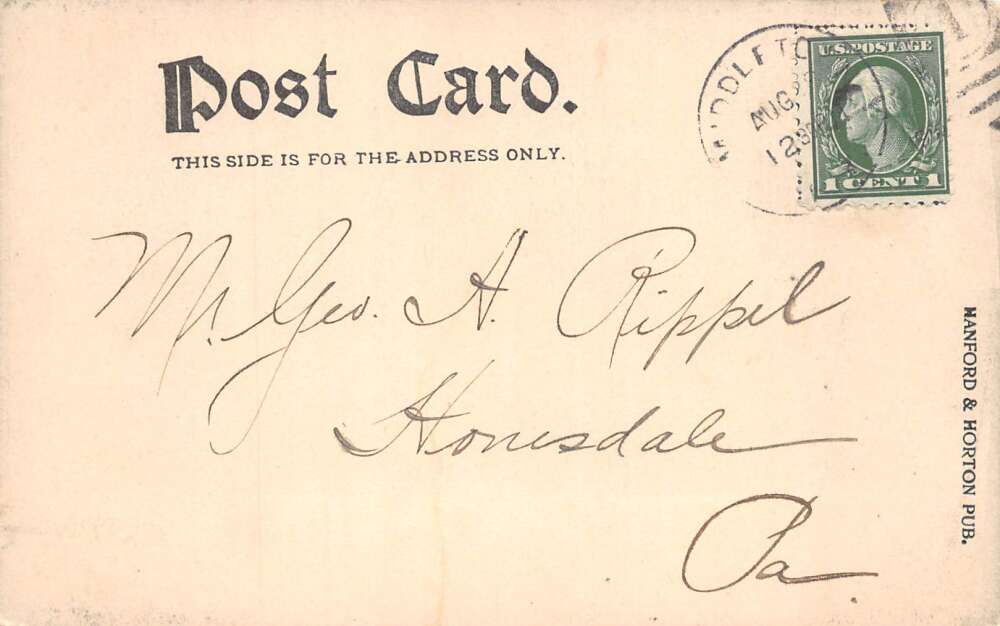 Post Card.
THIS SIDE IS FOR THE ADDRESS ONLY.
MIDDLETO
AUG
12
U.S. POSTAGE
1 CENT 1
Mr. Geo. A. Rippel
Honesdale
Pa
HANFORD & HORTON PUB.